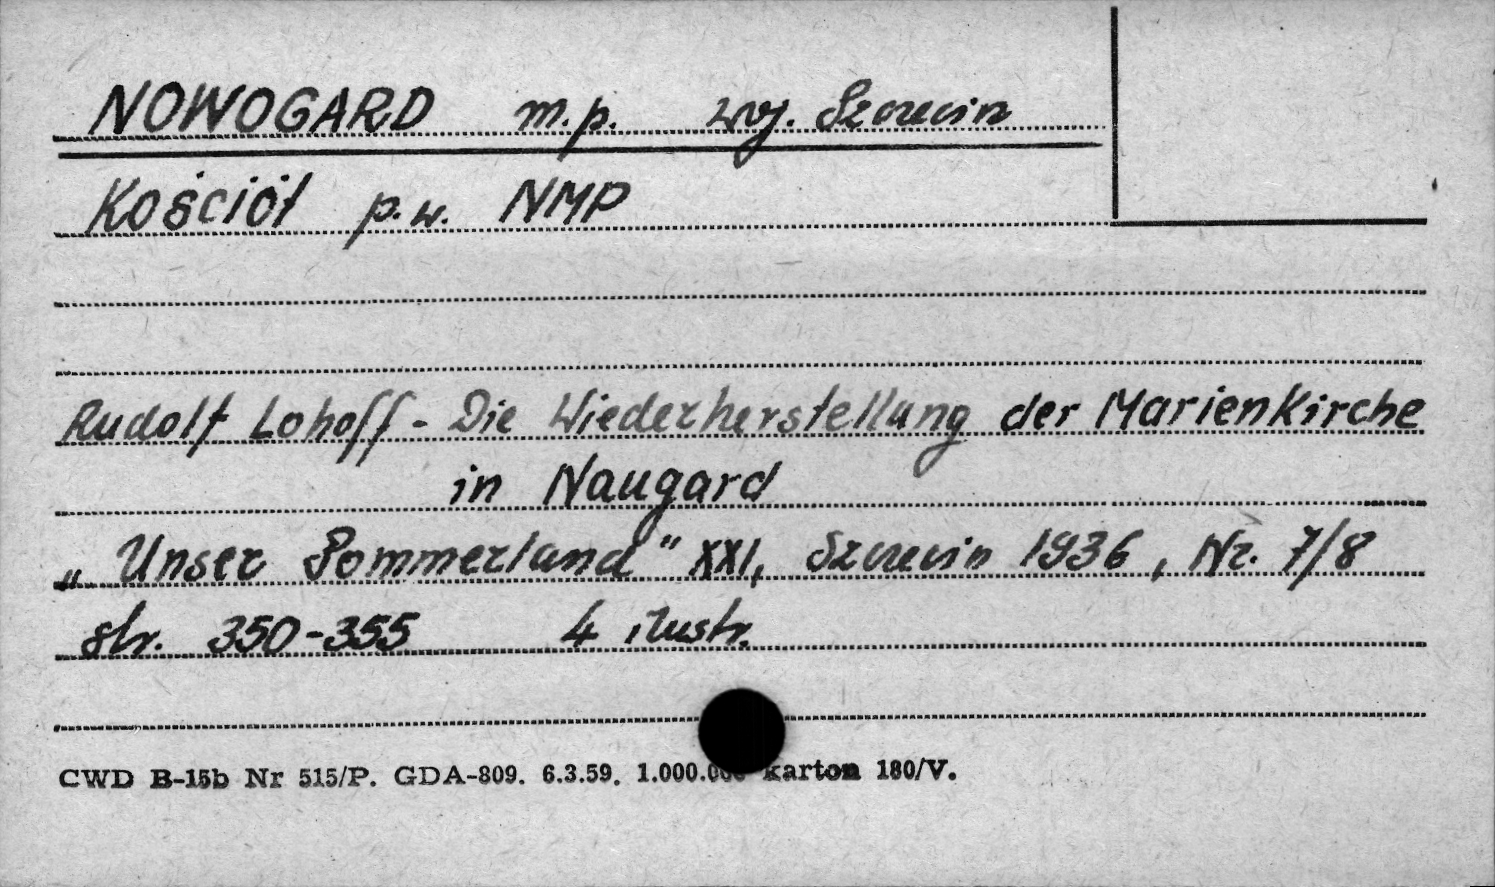 NOWOGARD m.p. woj. Szczecin
Kościół p.w. NMP
Rudolf Lohoff - Die Wiederherstellung der Marienkirche
in Naugard
„Unser Pommerland" XXI, Szczecin 1936, Nr. 7/8
str. 350-355 4 ilustr.
CWD B-15b Nr 515/P. GDA-809. 6.3.59. 1.000.000 karton 180/V.